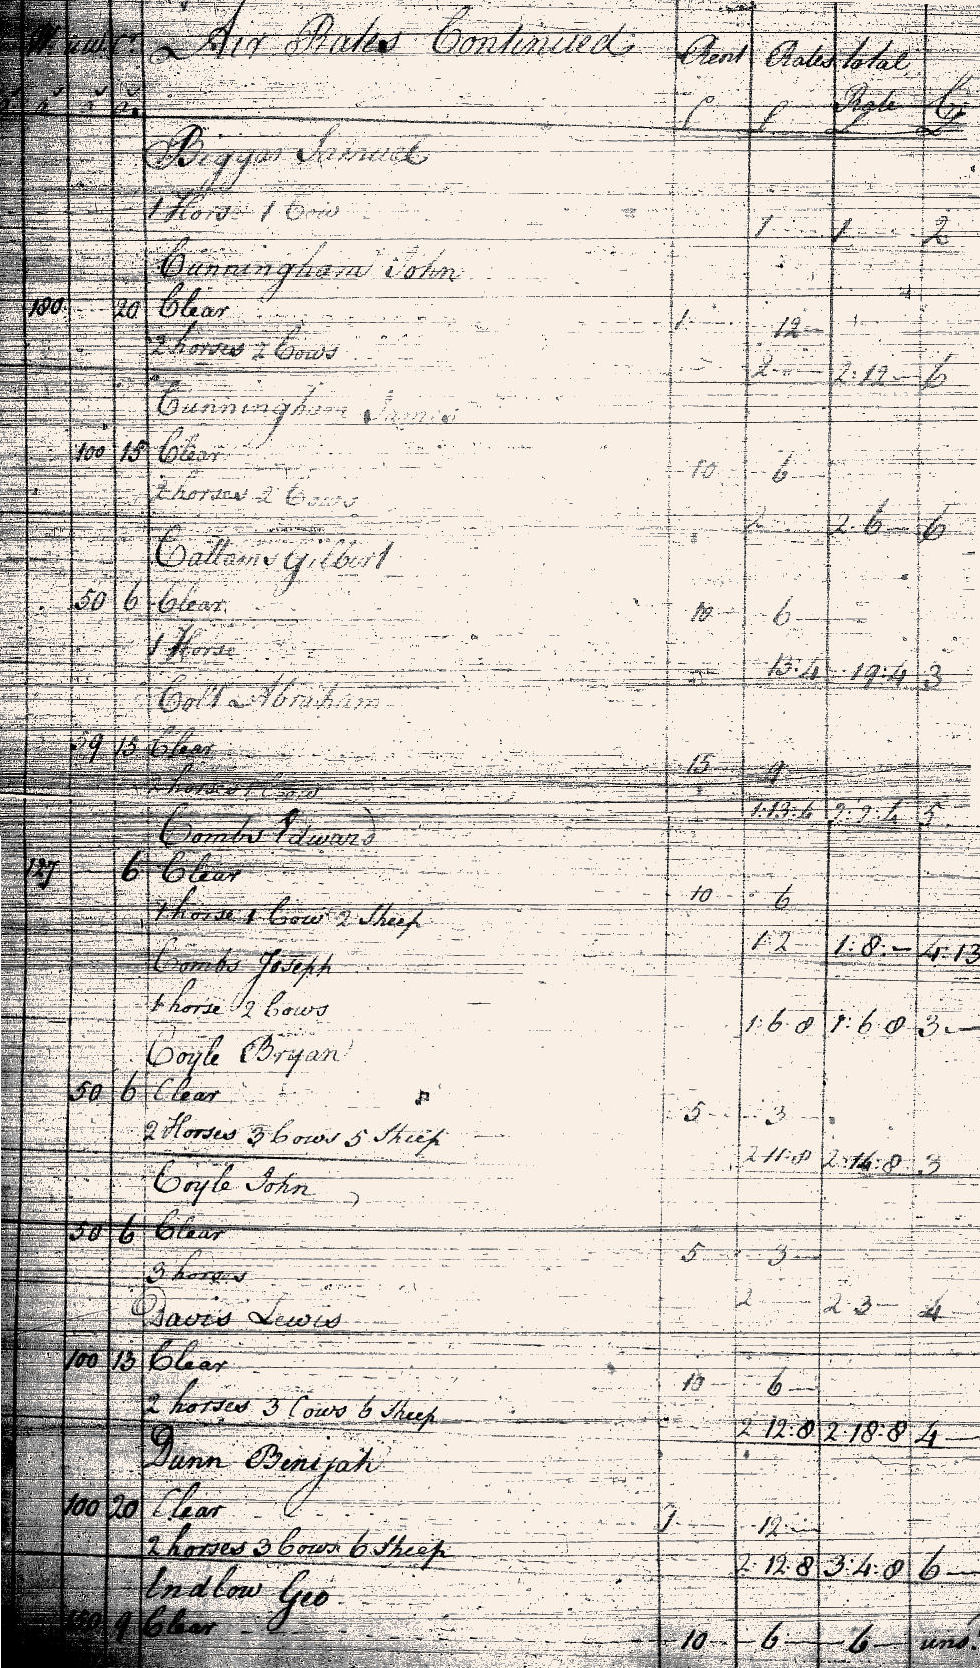 Air Rates Continued Rent Rates total
£ £ Rate
Biggar Samuel
1 Horse 1 Cow
1 1 2
Cunningham John
180 20 Clear
1 12
2 horses 2 Cows
2 2:12 6
Cunningham James
100 15 Clear
10 6
2 horses 2 Cows
2 2 6 6
Gilbert
50 6 Clear
10 6
1 Horse
13:4 19:4 3
Colt Abraham
39 13 Clear
15 9
2 horses 1 Cow
5
Combs Edward
127 6 Clear
10 6
1 horse 1 Cow 2 Sheep
1:2 1:8:— 4:13
Combs Joseph
1 horse 2 Cows
1:6 8 1:6 8 3—
Coyle Bryan
50 6 Clear
5 3
2 Horses 3 Cows 5 Sheep
2 11:8 2:14:8 3
Coyle John
50 6 Clear
5 3
3 horses
2 2 3 4
Davis Lewis
100 13 Clear
10 6
2 horses 3 Cows 6 Sheep
2 12:8 2 18:8 4
Dunn Benijah
100 20 Clear
1 12
2 horses 3 Cows 6 Sheep
2 12:8 3:4:8 6
Indlow Geo
9 Clear
10 6 6 uns